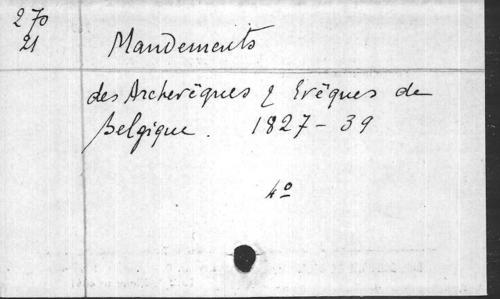 270
21
Mandements
des Archevêques & Evêques de
Belgique. 1827-39
4º